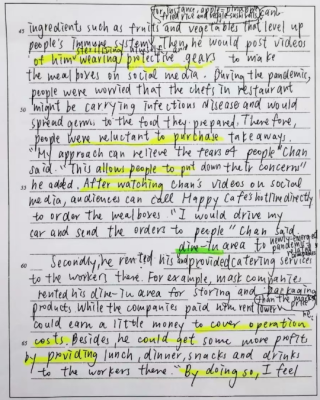 for instance, apple, pineapple
fried rice and veggie sushi
45 ingredients such as fruits and vegetables that level up
people's immune system. Then, he would post videos
of him wearing protective gears to make
the meal boxes on social media. During the pandemic,
people were worried that the chefs in restaurant
50 might be carrying infectious disease and would
spread germs to the food they prepared. Therefore,
people were reluctant to purchase takeaways.
"My approach can relieve the fears of people" Chan
said. "This allows people to put down their concern"
55 he added. After watching Chan's videos on social
media, audiences can call Happy Cafe's hotline directly
to order the meal boxes "I would drive my
car and send the orders to people" Chan said
dine-in area to
Secondly, he rented his provided catering services
60 to the workers there. For example, mask companies
rented his dine-in area for storing and packaging
products. While the companies paid him rent lower
than the market
could earn a little money to cover operation
65 costs. Besides, he could get some more profits
by providing lunch, dinner, snacks and drinks
to the workers there. "By doing so, I feel